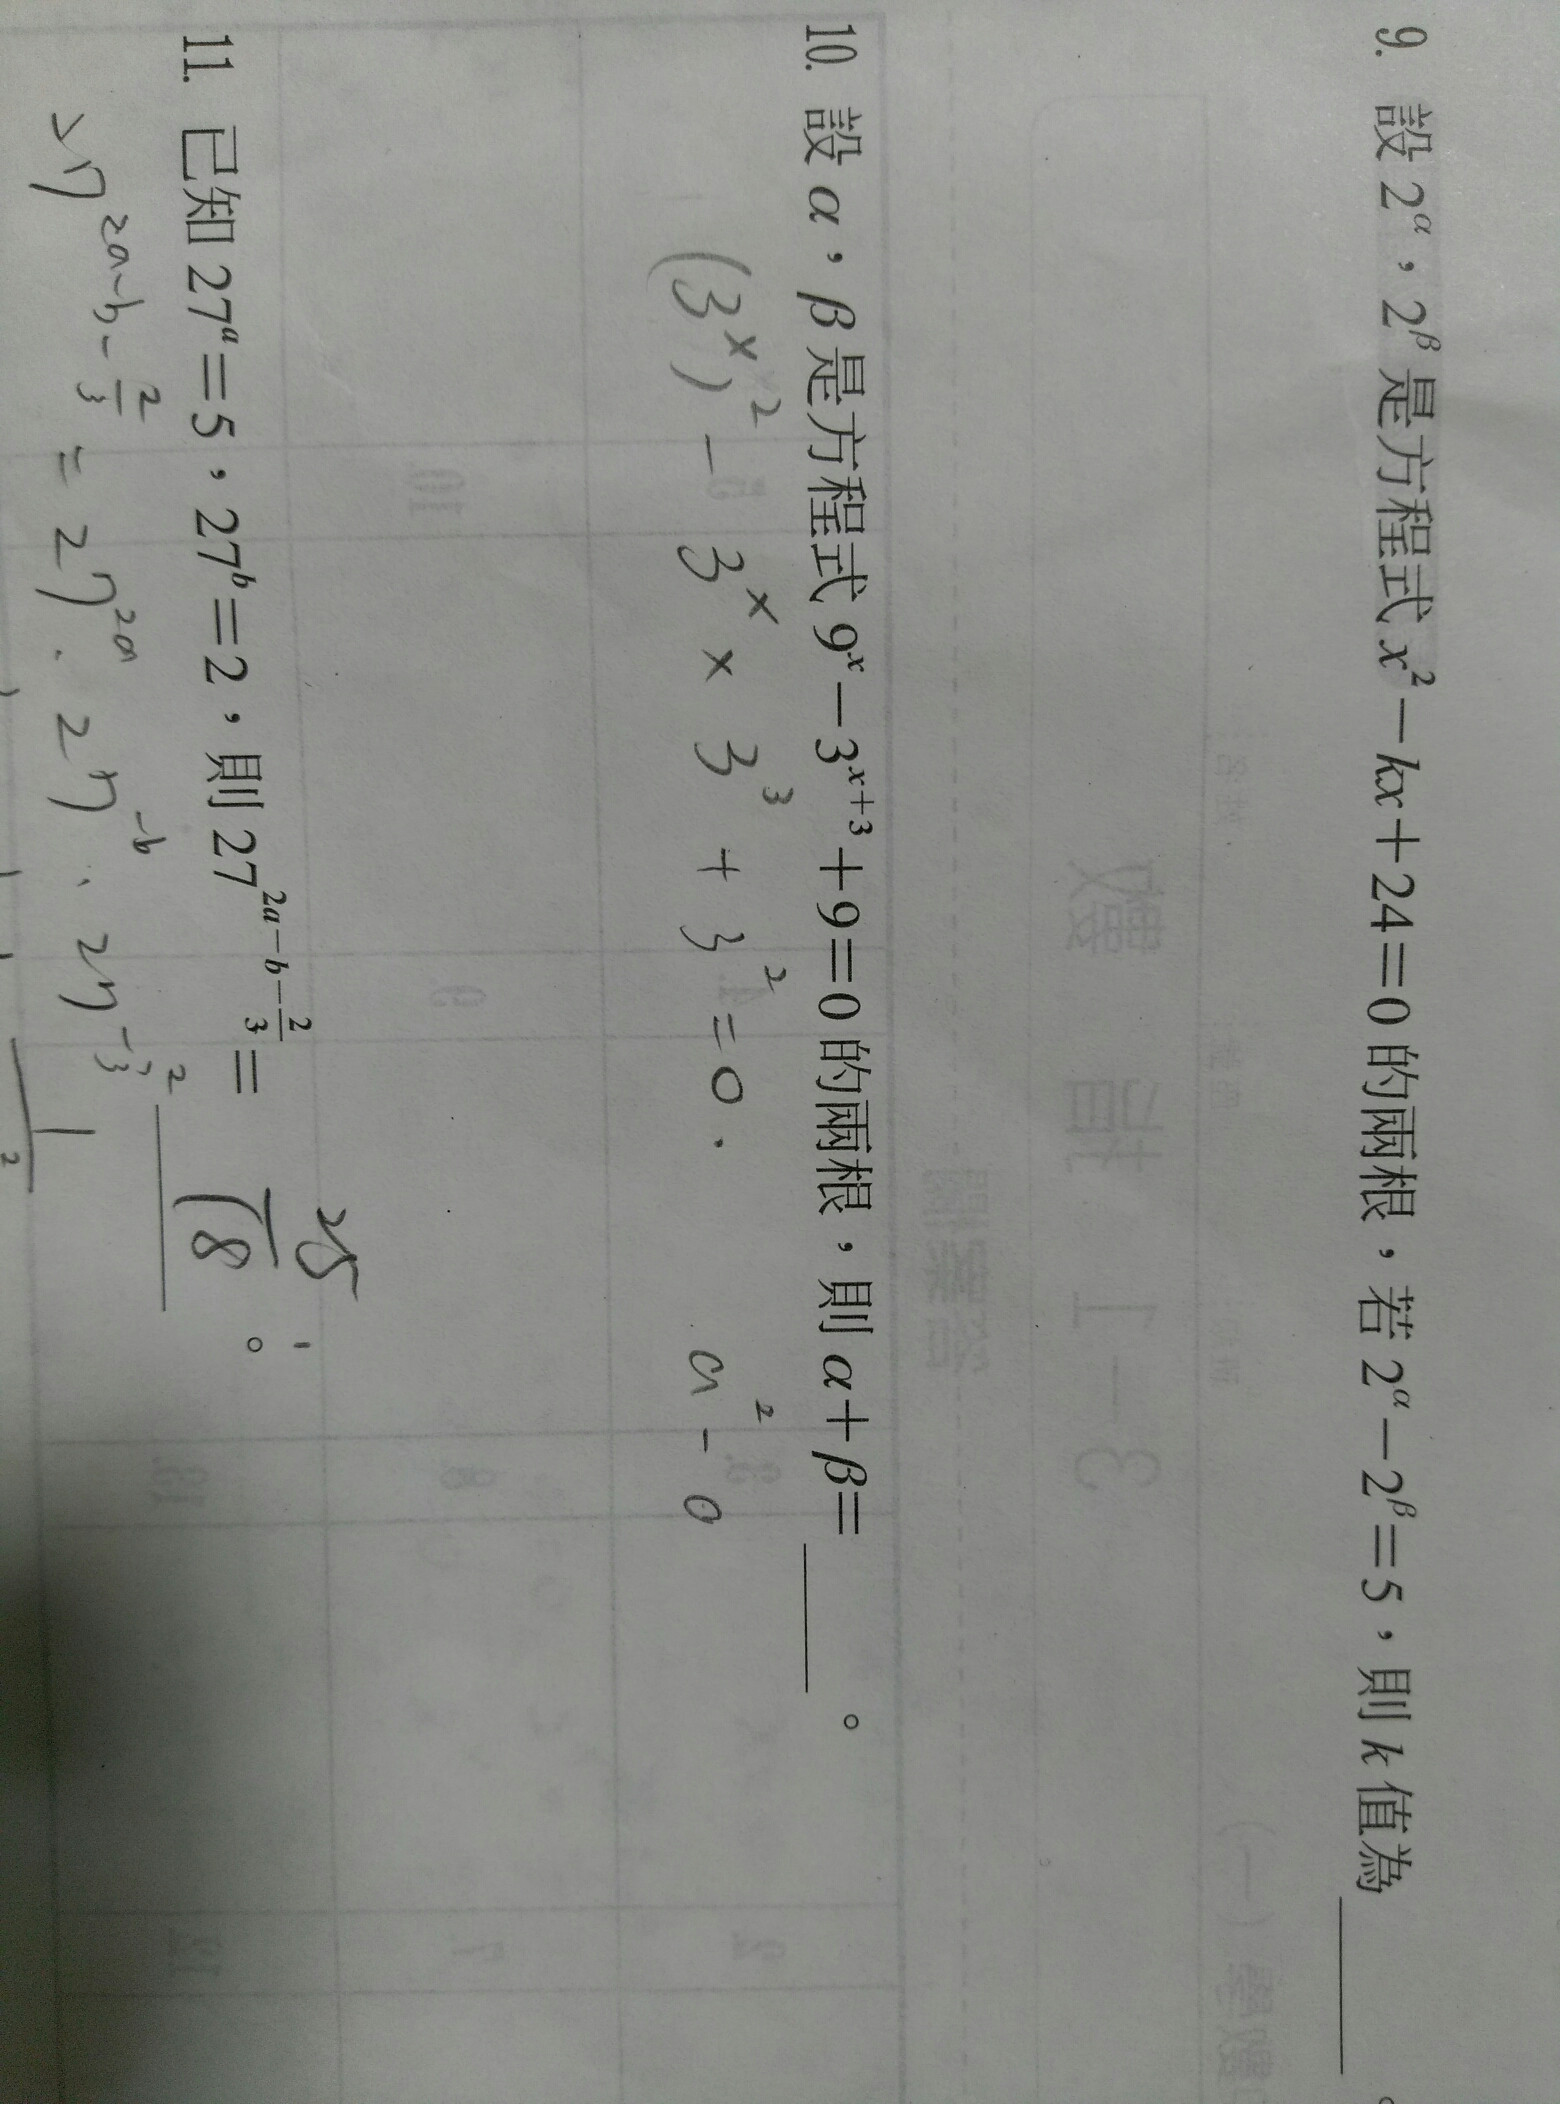 9. 設 2^α，2^β 是方程式 x²－kx＋24＝0 的兩根，若 2^α－2^β＝5，則 k 值為＿＿＿。
10. 設 α，β 是方程式 9^x－3^{x+3}＋9＝0 的兩根，則 α＋β＝＿＿＿。
(3^x)² － 3^x × 3³ + 3² = 0 .
a² －
11. 已知 27^a＝5，27^b＝2，則 27^{2a－b－2/3}＝ 25/18 。
27^{2a-b-2/3} = 27^{2a} . 27^{-b} . 27^{-2/3}